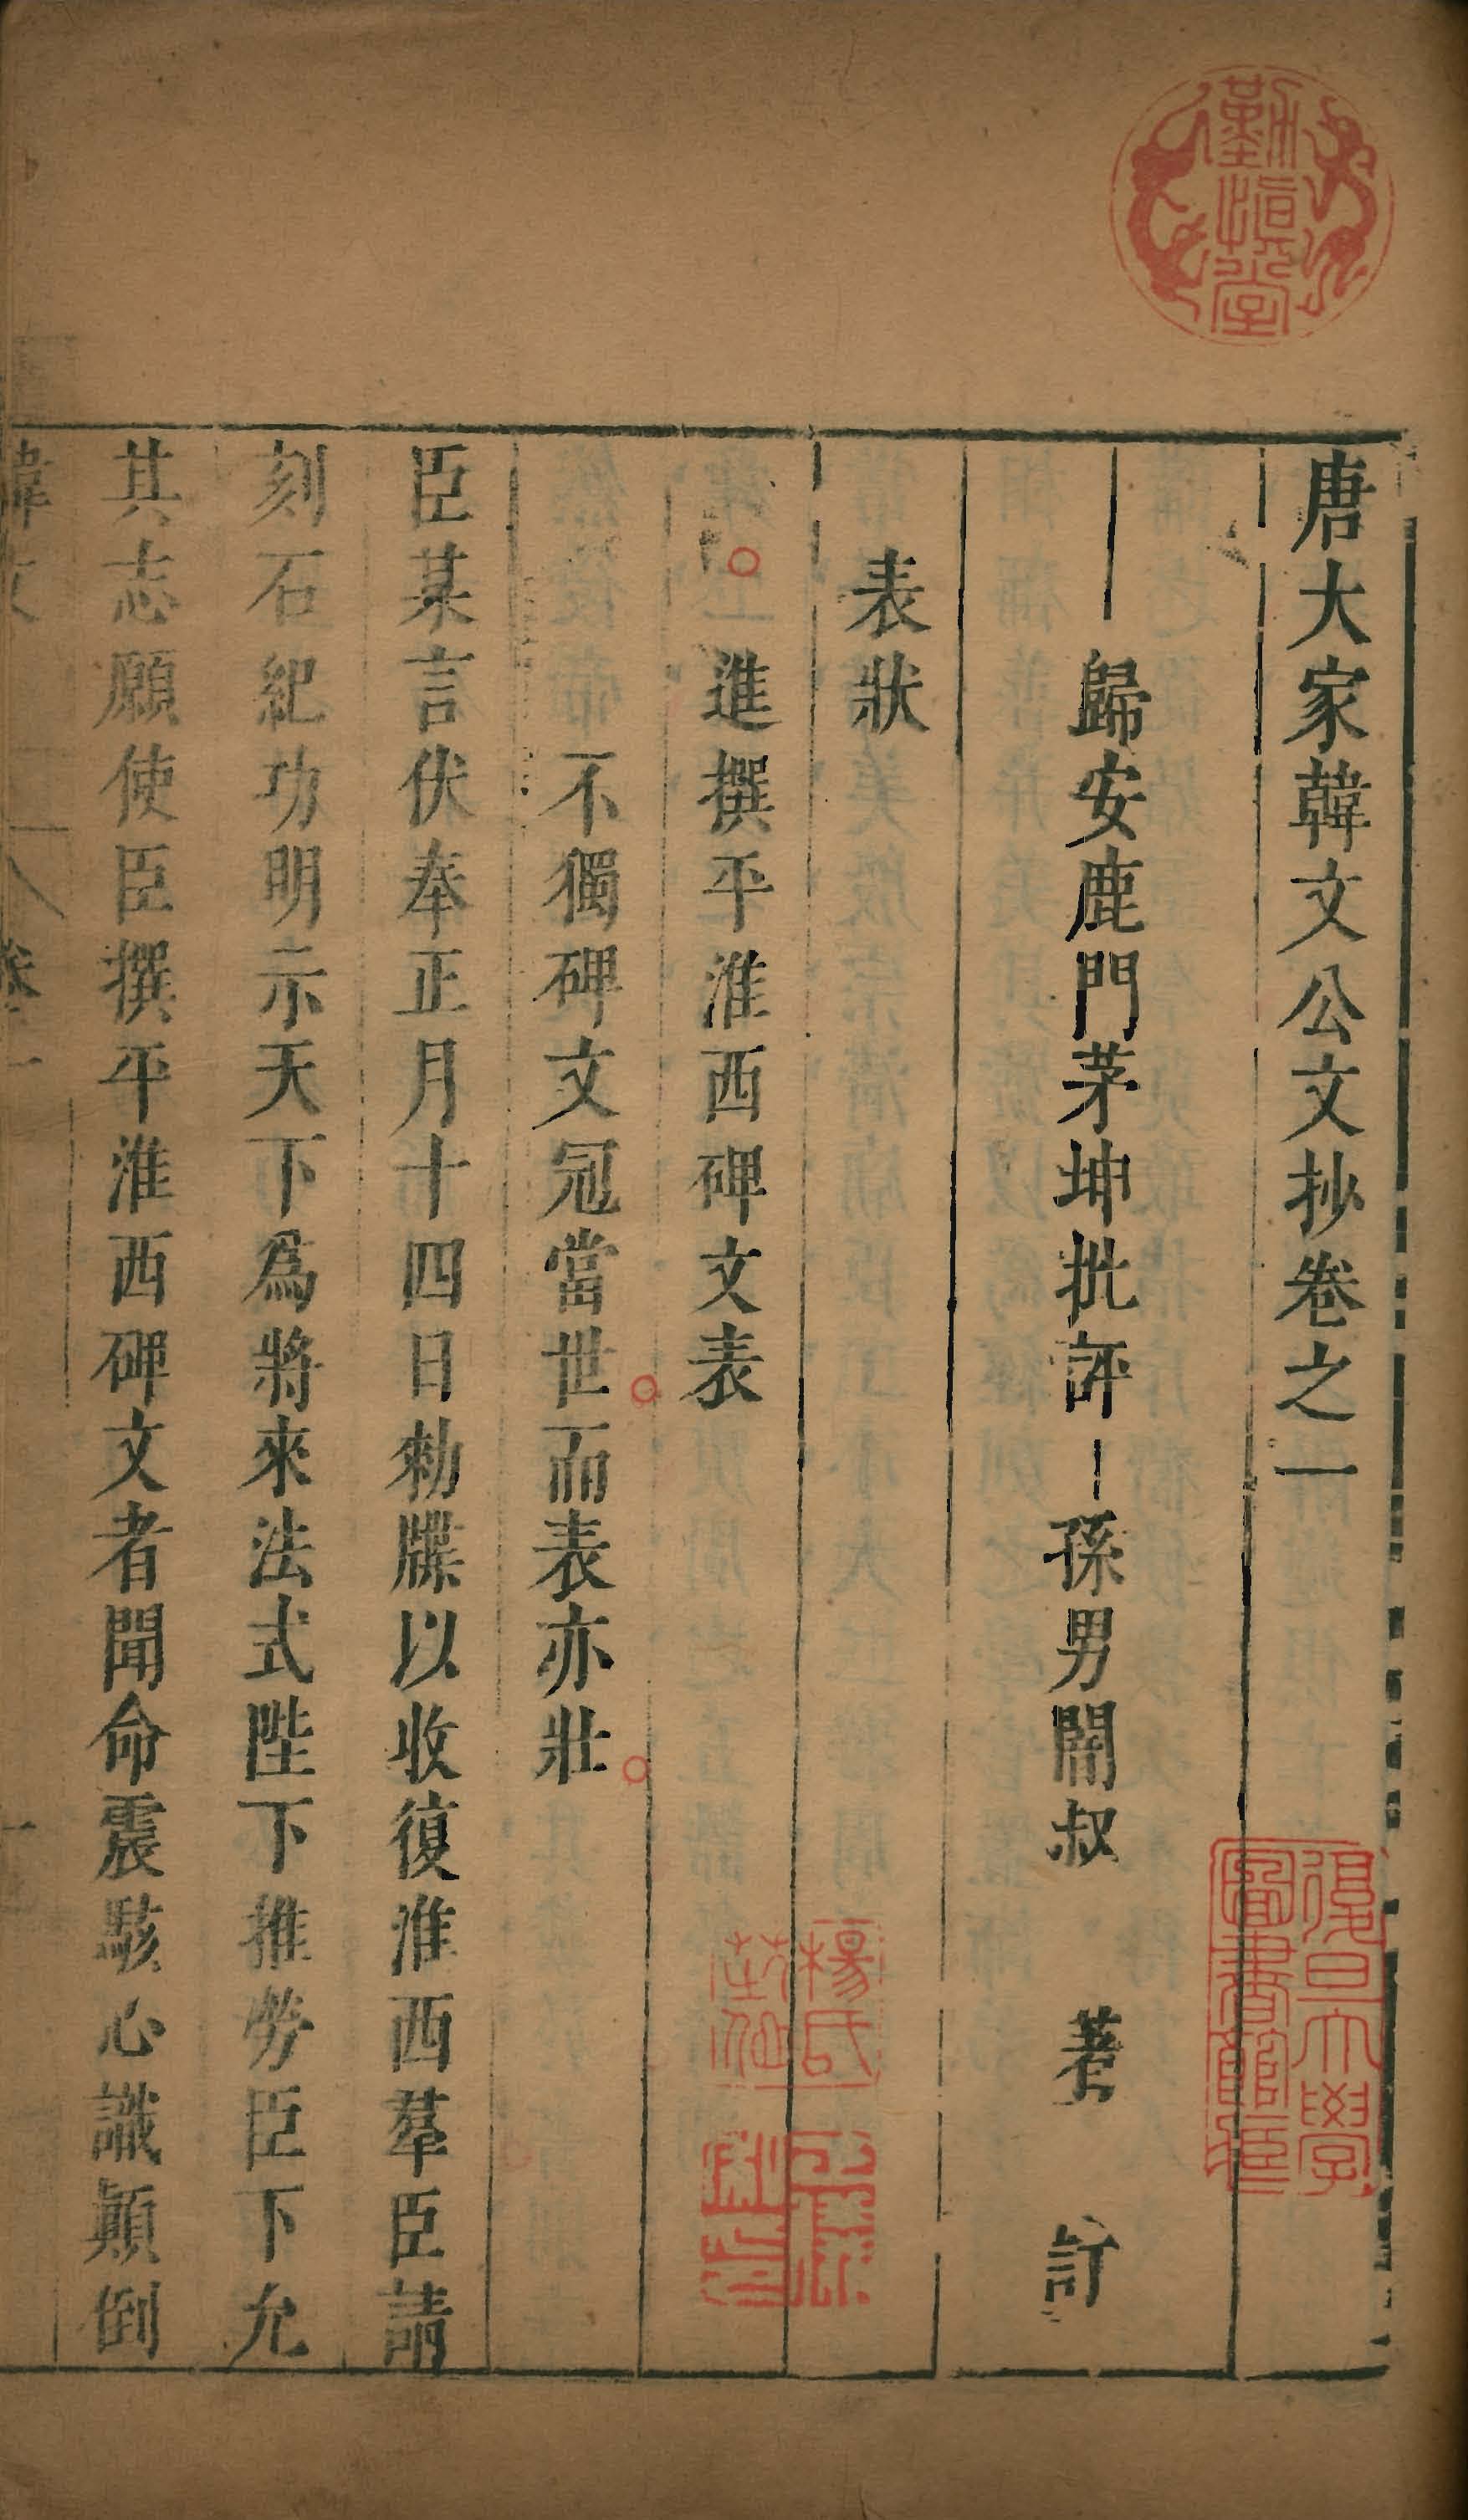 唐大家韓文公文抄卷之一
歸安鹿門茅坤批評 孫男闇叔 著 訂
表狀
進撰平淮西碑文表
不獨碑文冠當世而表亦壯
臣某言伏奉正月十四日勑牒以收復淮西羣臣請
刻石紀功明示天下爲將來法式陛下推勞臣下允
其志願使臣撰平淮西碑文者聞命震駭心識顛倒
韓文 卷一
復旦大學
圖書館藏
楊氏